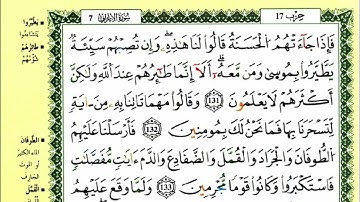 حزب 17
سُورَةُ الأَعْرَافِ 7
فَإِذَا جَآءَتْهُمُ الْحَسَنَةُ قَالُوا لَنَا هَٰذِهِۦ وَإِن تُصِبْهُمْ سَيِّئَةٌ
يَطَّيَّرُوا بِمُوسَىٰ وَمَن مَّعَهُۥٓ أَلَآ إِنَّمَا طَٰٓئِرُهُمْ عِندَ اللَّهِ وَلَٰكِنَّ
أَكْثَرَهُمْ لَا يَعْلَمُونَ 131 وَقَالُوا مَهْمَا تَأْتِنَا بِهِۦ مِنْ ءَايَةٍ
لِّتَسْحَرَنَا بِهَا فَمَا نَحْنُ لَكَ بِمُومِنِينَ 132 فَأَرْسَلْنَا عَلَيْهِمُ
الطُّوفَانَ وَالْجَرَادَ وَالْقُمَّلَ وَالضَّفَادِعَ وَالدَّمَ ءَايَٰتٍ مُّفَصَّلَٰتٍ
فَاسْتَكْبَرُوا وَكَانُوا قَوْمًا مُّجْرِمِينَ 133 وَلَمَّا وَقَعَ عَلَيْهِمُ
يَطَّيَّرُوا
يتشاءموا
طَائِرُهُمْ
شؤمهم
الطُّوفَانَ
الماء الكثير
أو الموت
الجارف
الْقُمَّلَ